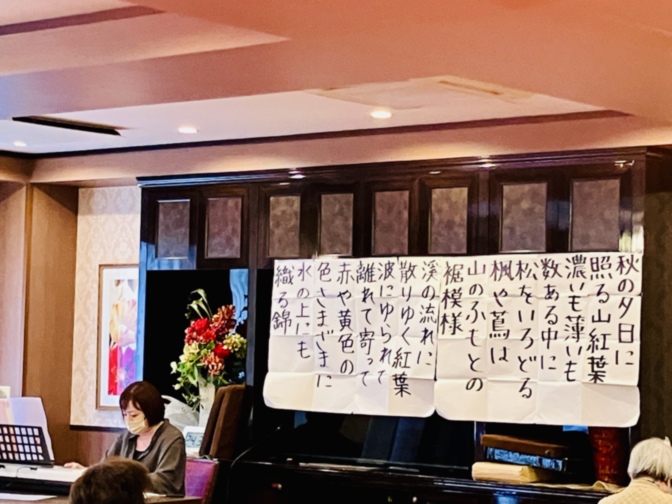 秋の夕日に
照る山紅葉
濃いも薄いも
数ある中に
松をいろどる
楓や蔦は
山のふもとの
裾模様
渓の流れに
散りゆく紅葉
波にゆられて
離れて寄って
赤や黄色の
色さまざまに
水の上にも
織る錦